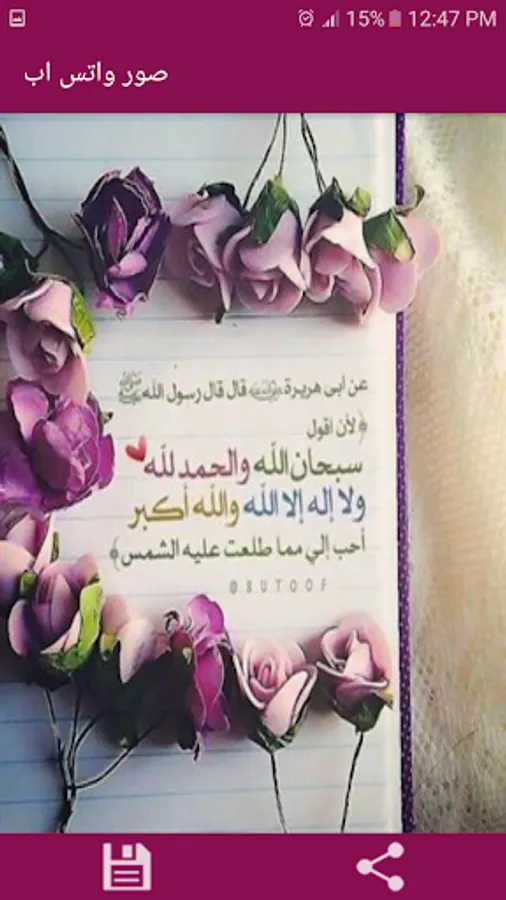 15% 12:47 PM
صور واتس اب
عن أبى هريرة رضي الله عنه قال قال رسول الله ﷺ
﴿لأن اقول
سبحان الله والحمد لله
ولا إله إلا الله والله أكبر
أحب إلي مما طلعت عليه الشمس﴾
@BUTOOF